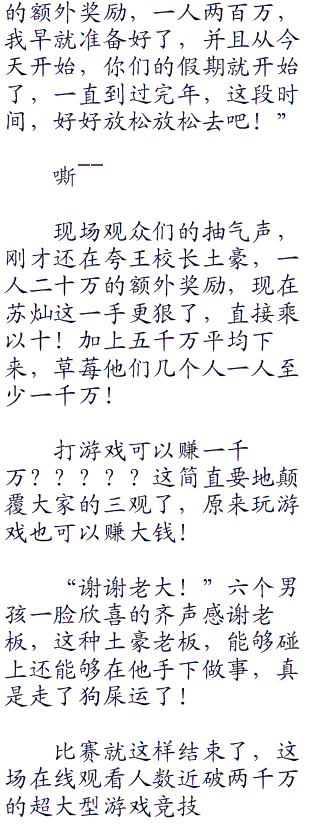 的额外奖励，一人两百万，
我早就准备好了，并且从今
天开始，你们的假期就开始
了，一直到过完年，这段时
间，好好放松放松去吧！”
嘶——
现场观众们的抽气声，
刚才还在夸王校长土豪，一
人二十万的额外奖励，现在
苏灿这一手更狠了，直接乘
以十！加上五千万平均下
来，草莓他们几个人一人至
少一千万！
打游戏可以赚一千
万？？？？？这简直要地颠
覆大家的三观了，原来玩游
戏也可以赚大钱！
“谢谢老大！”六个男
孩一脸欣喜的齐声感谢老
板，这种土豪老板，能够碰
上还能够在他手下做事，真
是走了狗屎运了！
比赛就这样结束了，这
场在线观看人数近破两千万
的超大型游戏竞技